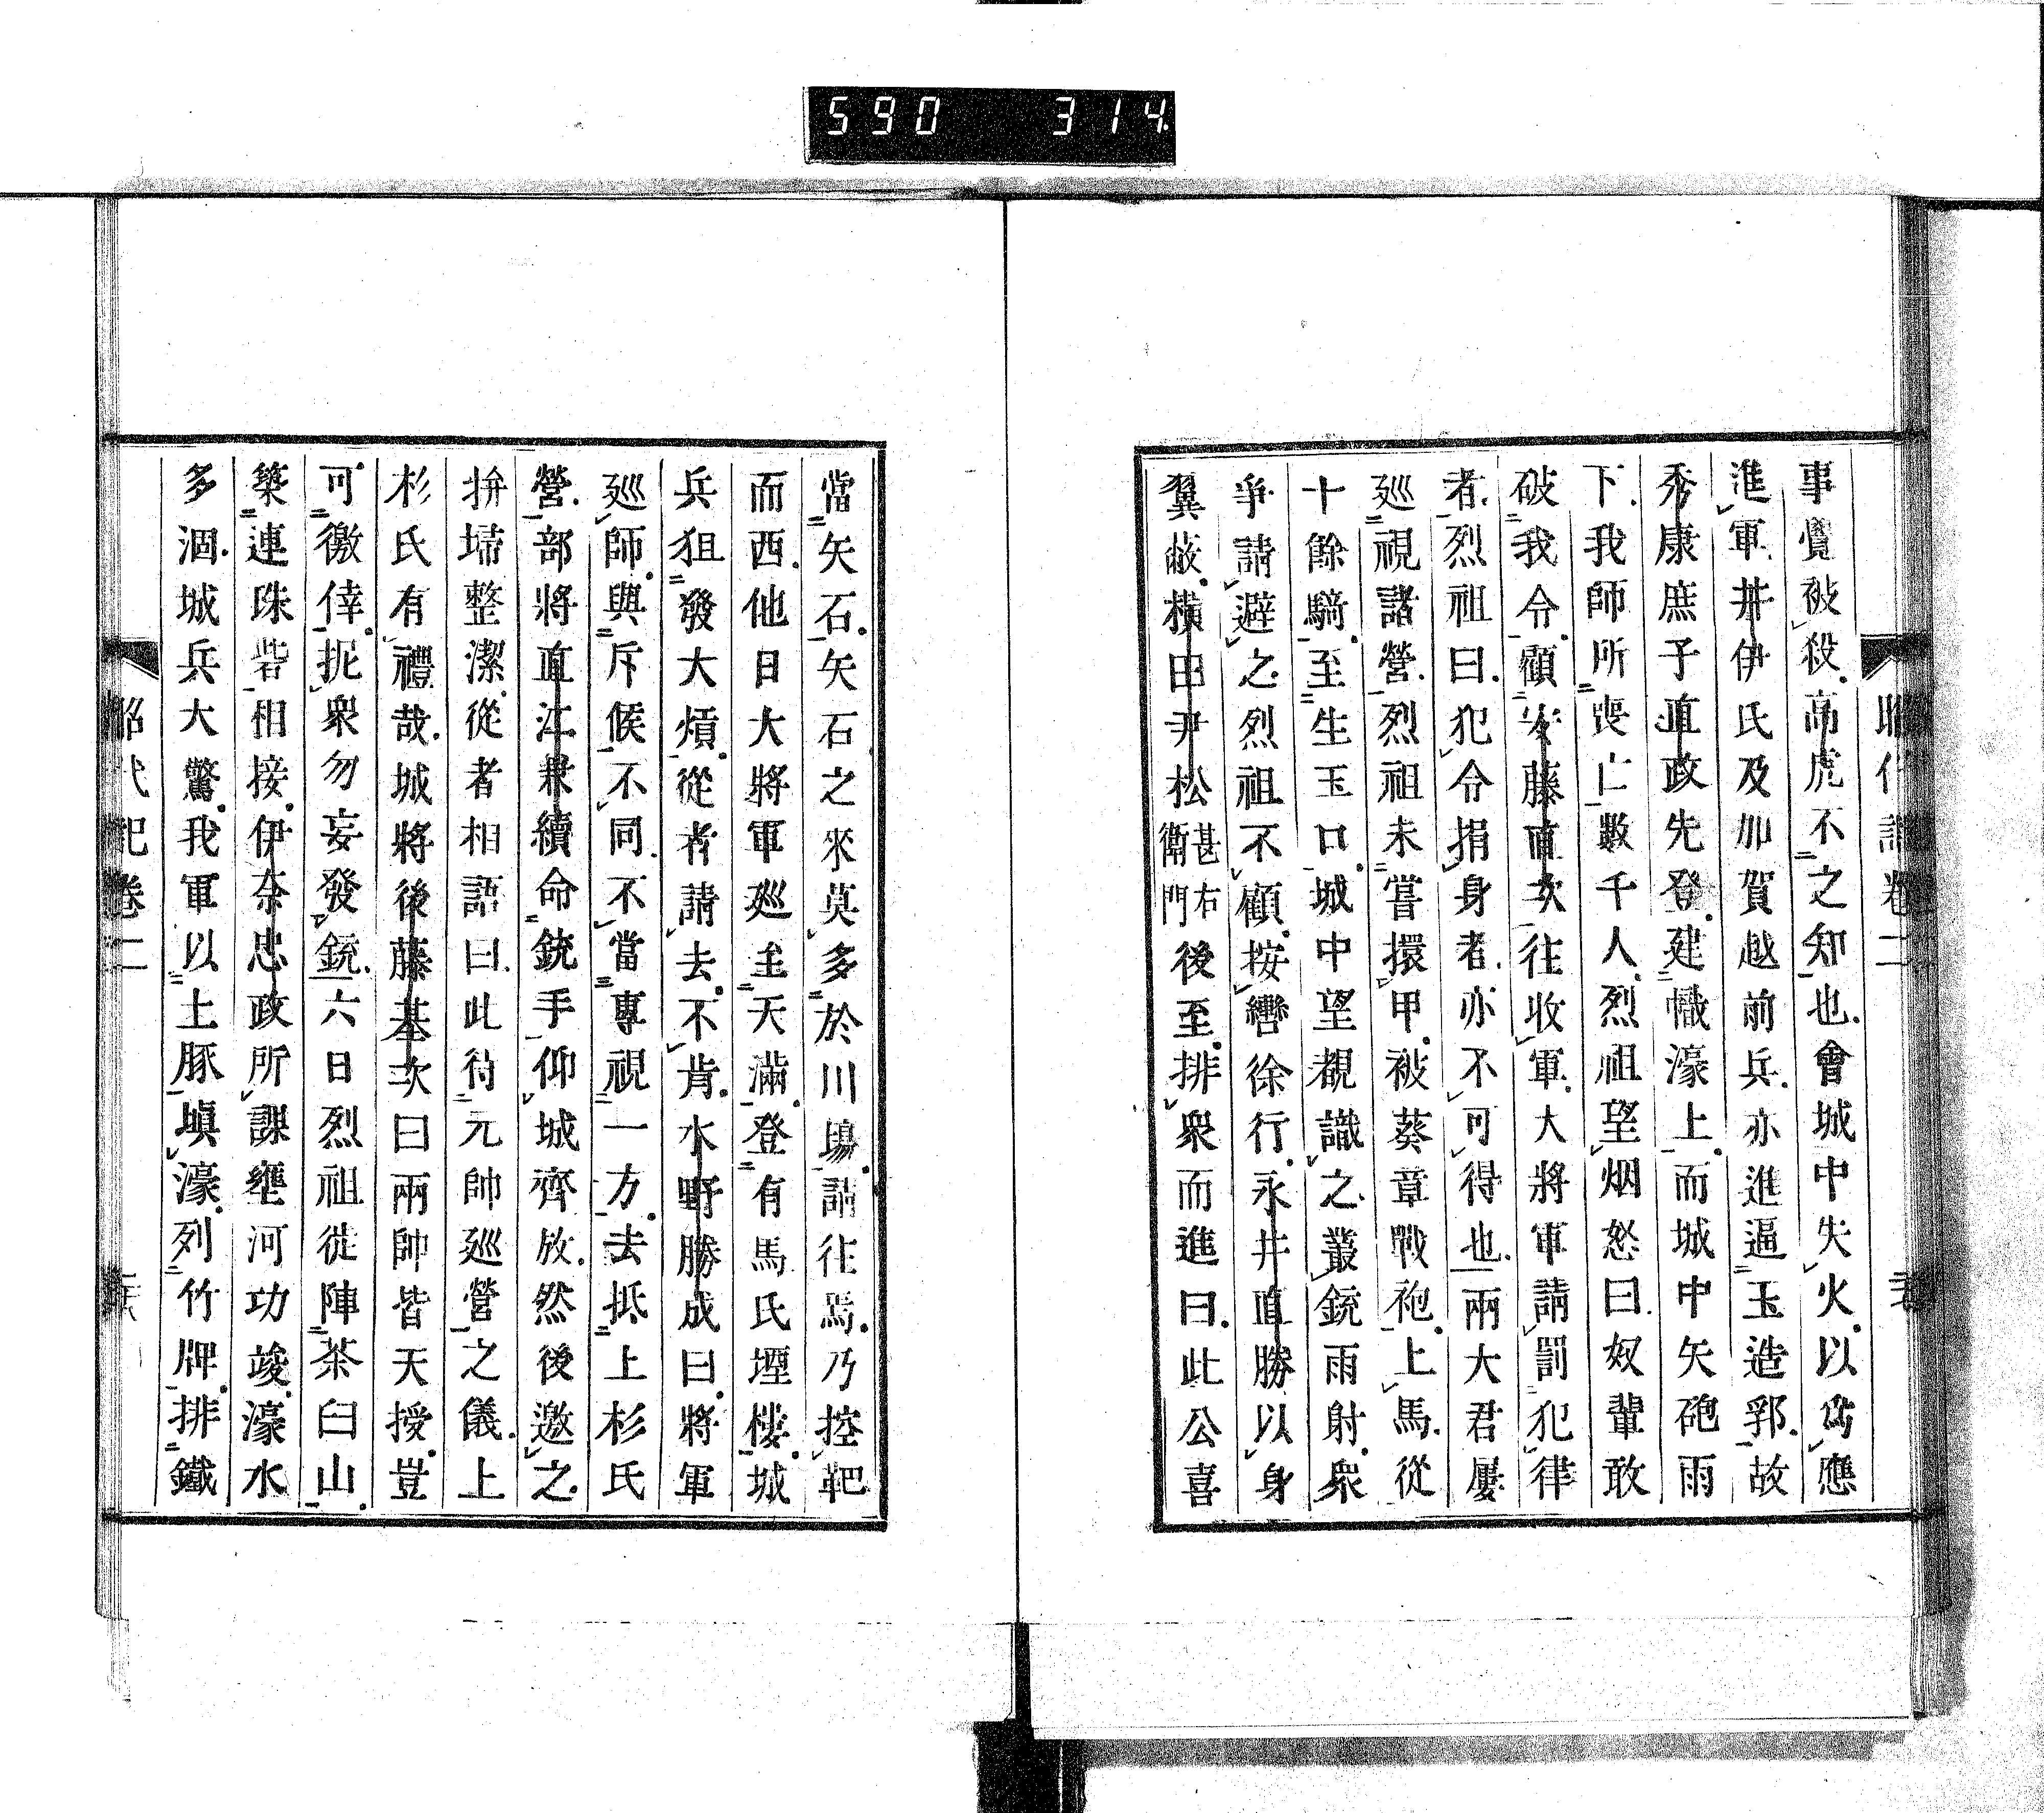 590 314
昭代記卷二
事覺被殺高虎不之知也會城中失火以爲應
進軍井伊氏及加賀越前兵亦進逼玉造郛故
秀康庶子直政先登建幟濠上而城中矢砲雨
下我師所喪亡數千人烈祖望烟怒曰奴輩敢
破我令顧安藤直次往收軍大將軍請罰犯律
者烈祖曰犯令捐身者亦不可得也兩大君屢
巡視諸營烈祖未嘗擐甲被葵章戰袍上馬從
十餘騎至生玉口城中望覩識之叢銃雨射衆
爭請避之烈祖不顧按轡徐行永井直勝以身
翼蔽橫田尹松甚右衛門後至排衆而進曰此公喜
當矢石矢石之來莫多於川場請往焉乃控靶
而西他日大將軍巡至天滿登有馬氏堙樓城
兵狙發大熕從者請去不肯水野勝成曰將軍
巡師與斥候不同不當專視一方去抵上杉氏
營部將直江兼續命銃手仰城齊放然後邀之
拚埽整潔從者相語曰此待元帥巡營之儀上
杉氏有禮哉城將後藤基次曰兩帥皆天授豈
可徼倖扼衆勿妄發銃六日烈祖徙陣茶臼山
築連珠砦相接伊奈忠政所課壅河功竣濠水
多涸城兵大驚我軍以土豚塡濠列竹牌排鐵
昭代記卷二